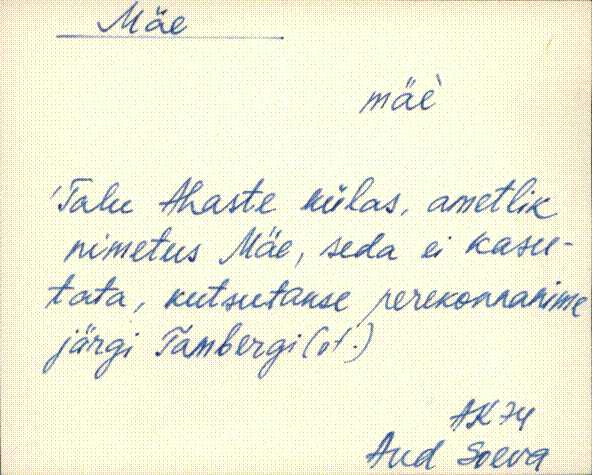 Mäe
mäè
Talu Ahaste külas, ametlik
nimetus Mäe, seda ei kasu-
tata, kutsutakse perekonnanime
järgi Tambergi (vt.)
AK 74
Aud Soeva